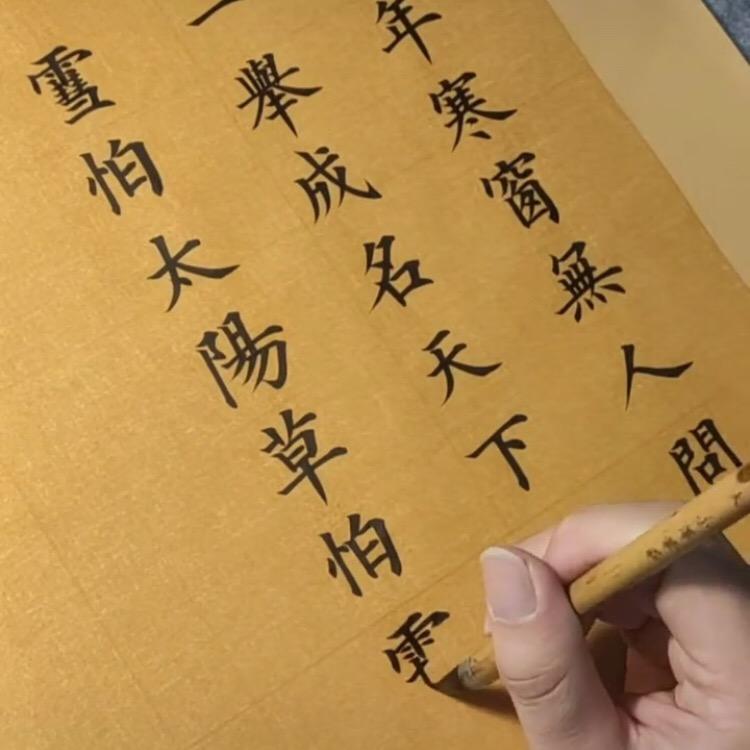 年寒窗無人問
一舉成名天下
雪怕太陽草怕